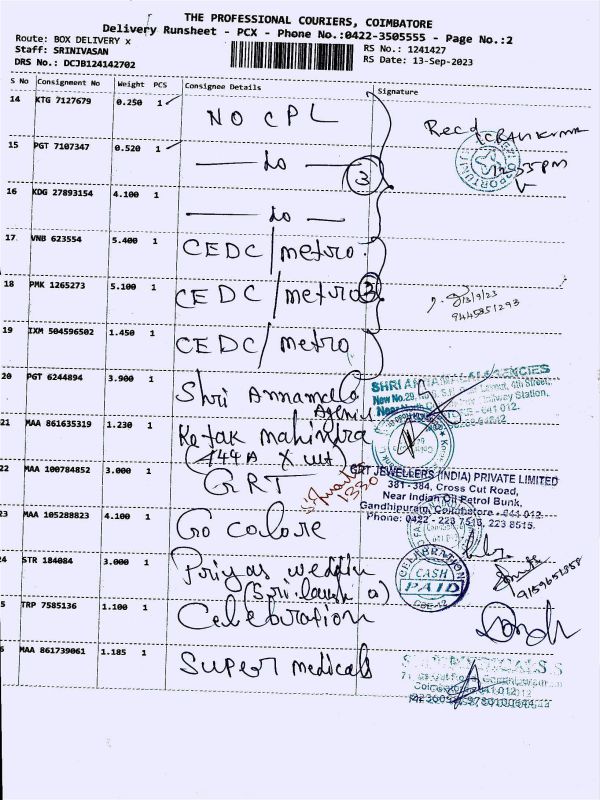 THE PROFESSIONAL COURIERS, COIMBATORE
Delivery Runsheet - PCX - Phone No.:0422-3505555 - Page No.:2
Route: BOX DELIVERY x
Staff: SRINIVASAN
DRS No.: DCJB124142702
RS No.: 1241427
RS Date: 13-Sep-2023
S No Consignment No Weight PCS Consignee Details Signature
14 KTG 7127679 0.250 1 NO CPL
Recd
15 PGT 7107347 0.520 1 do
3
12:35 PM
16 KDG 27893154 4.100 1 do
17 VNB 623554 5.400 1 CEDC/metro
18 PMK 1265273 5.100 1 CEDC/metro
3
13/9/23
9445851293
19 IXM 504596502 1.450 1 CEDC/metro
20 PGT 6244894 3.900 1 Shri Annamala
Agencies
SHRI ANNAMALAI AGENCIES
21 MAA 861635319 1.230 1 Kotak mahindra
(144A X cut)
22 MAA 100784852 3.000 1 GRT
GRT JEWELLERS (INDIA) PRIVATE LIMITED
381 - 384, Cross Cut Road,
Near Indian Oil Petrol Bunk,
Gandhipuram, Coimbatore - 641 012.
Phone: 0422 - 223 7515, 223 8515.
23 MAA 105288823 4.100 1 Go colore
24 STR 184084 3.000 1 Priyas weddin
CELEBRATION
CASH
PAID
CBE-12
9159652858
5 TRP 7585136 1.100 1 Celebration
6 MAA 861739061 1.185 1 Super medicals